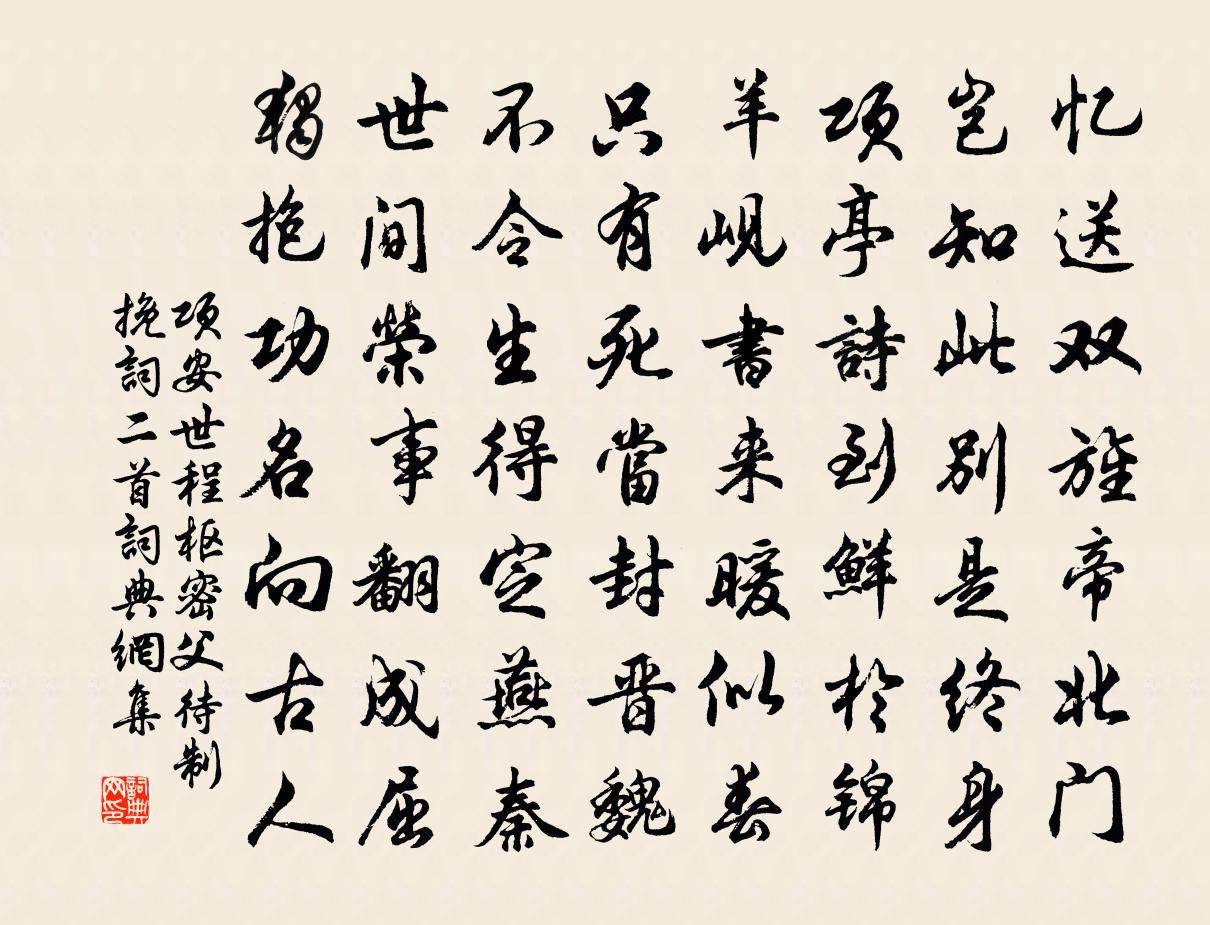 忆送双旌帝北门
岂知此别是终身
项亭詩到鮮於锦
羊岘書来暖似春
只有死當封晋魏
不令生得定燕秦
世间榮事翻成屈
独抱功名向古人
项安世程枢密父待制
挽詞二首詞典網集
詞典网印